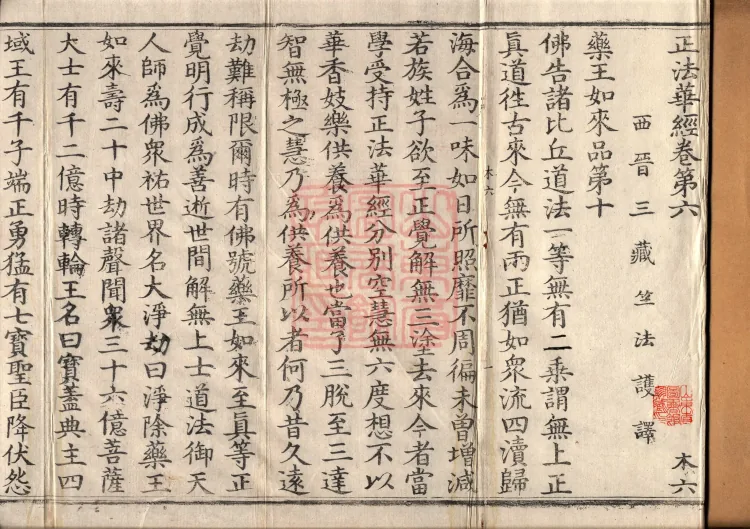 正法華經卷第六
木六
西晉三藏竺法護譯
藥王如來品第十
佛告諸比丘道法一等無有二乘謂無上正
眞道徃古來今無有兩正猶如衆流四瀆歸
木六
海合爲一味如日所照靡不周徧未曾增減
若族姓子欲至正覺解無三塗去來今者當
學受持正法華經分別空慧無六度想不以
華香妓樂供養爲供養也當了三脫至三達
智無極之慧乃爲供養所以者何乃昔久遠
劫難稱限爾時有佛號藥王如來至眞等正
覺明行成爲善逝世間解無上士道法御天
人師爲佛衆祐世界名大淨劫曰淨除藥王
如來壽二十中劫諸聲聞衆三十六億菩薩
大士有千二億時轉輪王名曰寶蓋典主四
域王有千子端正勇猛有七寶聖臣降伏怨